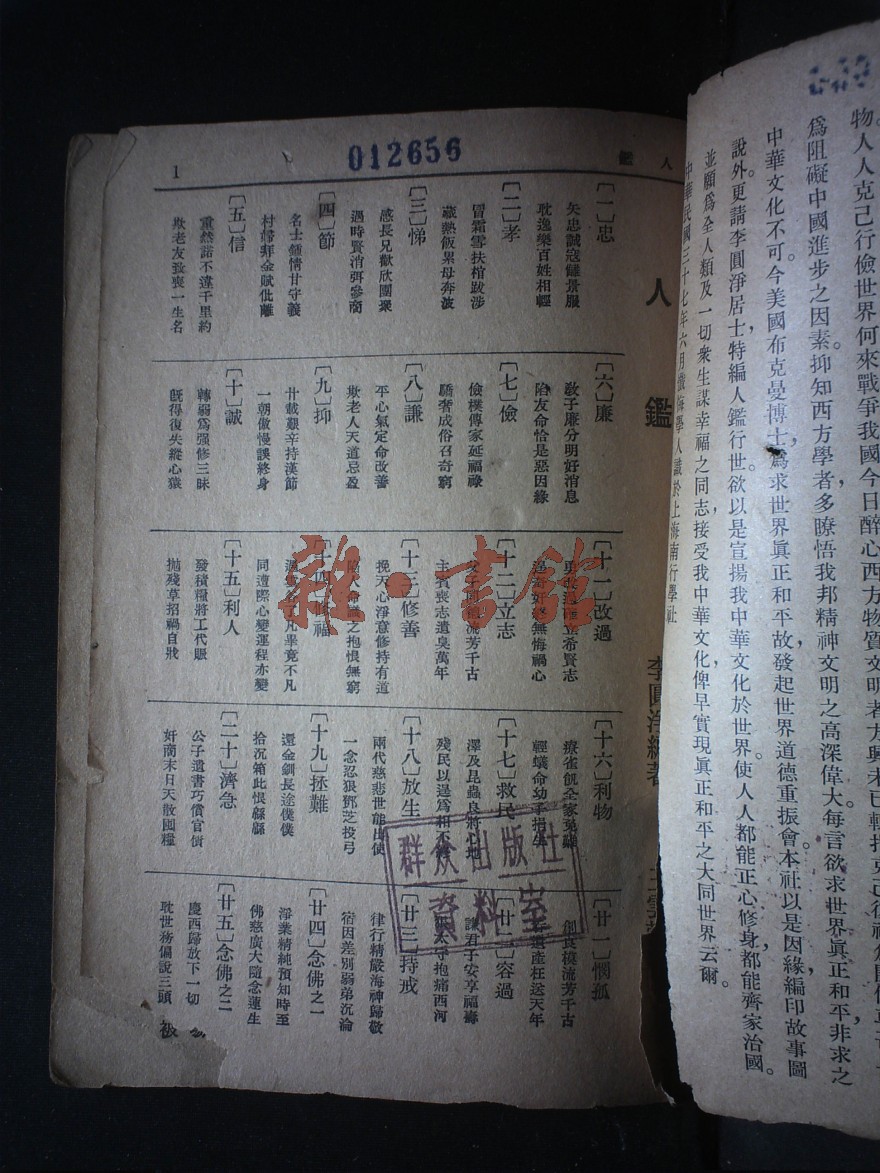 物。人人克己行儉世界何來戰爭我國今日醉心西方物質文明者方興未已
爲阻礙中國進步之因素。抑知西方學者多瞭悟我邦精神文明之高深偉大每言欲求世界眞正和平非求之
中華文化不可。今美國布克曼博士爲求世界眞正和平故發起世界道德重振會本社以是因緣編印故事圖
說外。更請李圓淨居士特編人鑑行世欲以是宣揚我中華文化於世界。使人人都能正心修身都能齊家治國。
並願爲全人類及一切衆生謀幸福之同志接受我中華文化俾早實現眞正和平之大同世界云爾。
中華民國三十七年六月懺悔學人識於上海南行學社
人鑑
1
012656
人鑑
李圓淨編著
〔一〕忠
矢忠誠寇讎景服
耽逸樂百姓相輕
〔二〕孝
冒霜雪扶棺跋涉
藏熱飯累母奔波
〔三〕悌
感長兄歡欣團聚
遇時賢消弭參商
〔四〕節
名士鍾情甘守義
村婦拜金賦仳離
〔五〕信
重然諾不違千里約
欺老友致喪一生名
〔六〕廉
敎子廉分明好消息
陷友命恰是惡因緣
〔七〕儉
儉樸傳家延福祿
驕奢成俗召奇窮
〔八〕謙
平心氣定命改善
欺老人天道忌盈
〔九〕抑
廿載艱辛持漢節
一朝傲慢誤終身
〔十〕誠
轉弱爲强修三昧
旣得復失縱心猿
〔十一〕改過
勇改過
立希賢志
無悔禍心
〔十二〕立志
父子
流芳千古
主賓喪志遺臭萬年
〔十三〕修善
挽天心淨意修持有道
之抱恨無窮
〔十四〕修福
了凡畢竟不凡
同遭際心變運程亦變
〔十五〕利人
發積糧將工代賑
拋殘草招禍自戕
〔十六〕利物
療雀飢全家免難
輕蟻命幼子捐生
〔十七〕救民
澤及昆蟲良將心地
殘民以逞爲相不
〔十八〕放生
兩代慈悲世能出使
一念忍狠鄧芝投弓
〔十九〕拯難
還金釧長途僕僕
拾沉箱此恨緜緜
〔二十〕濟急
公子遺書巧償官債
奸商末日天散囤糧
〔廿一〕憫孤
創良模流芳千古
遺產枉送天年
〔廿二〕容過
謙君子安享福壽
太守抱痛西河
〔廿三〕持戒
律行精嚴海神歸敬
宿因差別弱弟沉淪
〔廿四〕念佛之一
淨業精純預知時至
佛慈廣大隨念蓮生
〔廿五〕念佛之二
慶西歸放下一切
耽世務偏說三頭
群众出版社
資料室
雜·書館